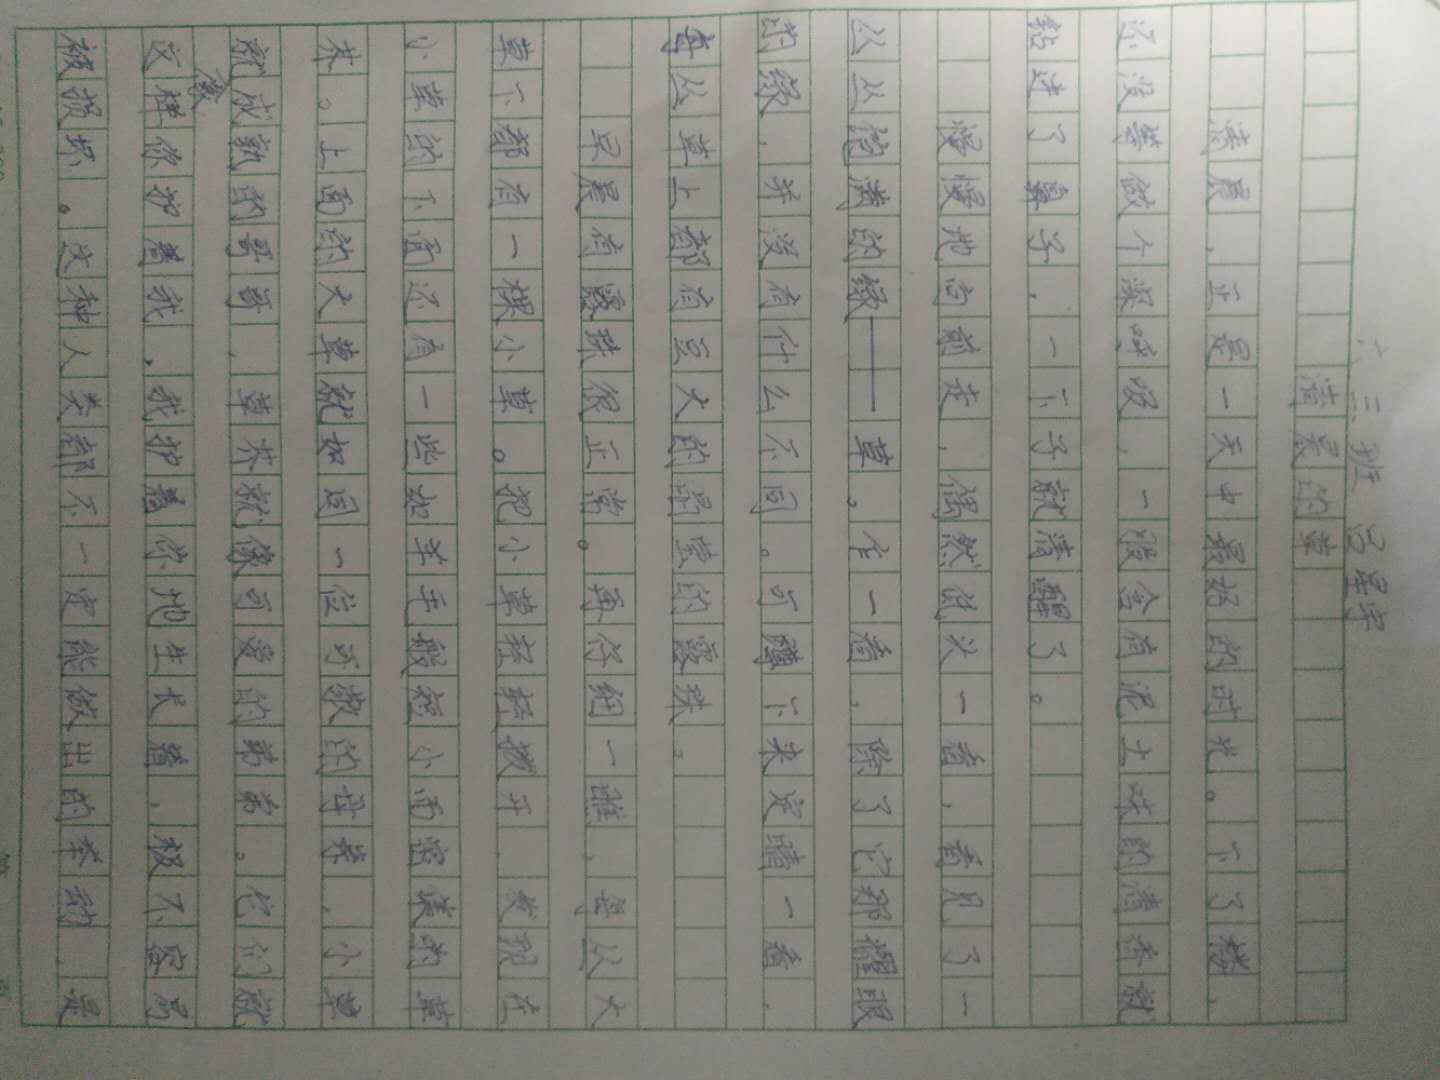 六三班 弓星宇
清晨的草
清晨，正是一天中最好的时光。下了楼，
还没等做个深呼吸，一股含有泥土味的清香就
钻进了鼻子，一下子就清醒了。
慢慢地向前走，偶然低头一看，看见了一
丛丛的满的绿——草。乍一看，除了它那耀眼
的绿，并没有什么不同。可蹲下来定睛一看，
每丛草上都有豆大的晶莹的露珠。
早晨有露珠很正常。再仔细一瞧，每丛大
草下都有一棵小草。把小草轻轻拨开，发现在
小草的下面还有一些如羊毛般短小而密集的草
末。上面的大草就如同一位可敬的母亲，小草
就成熟的哥哥，草末就像可爱的弟弟。它们就
像
这样你护着我，我护着你地生长着，极不容易
被损坏。这种人类都不一定能做出的举动，是